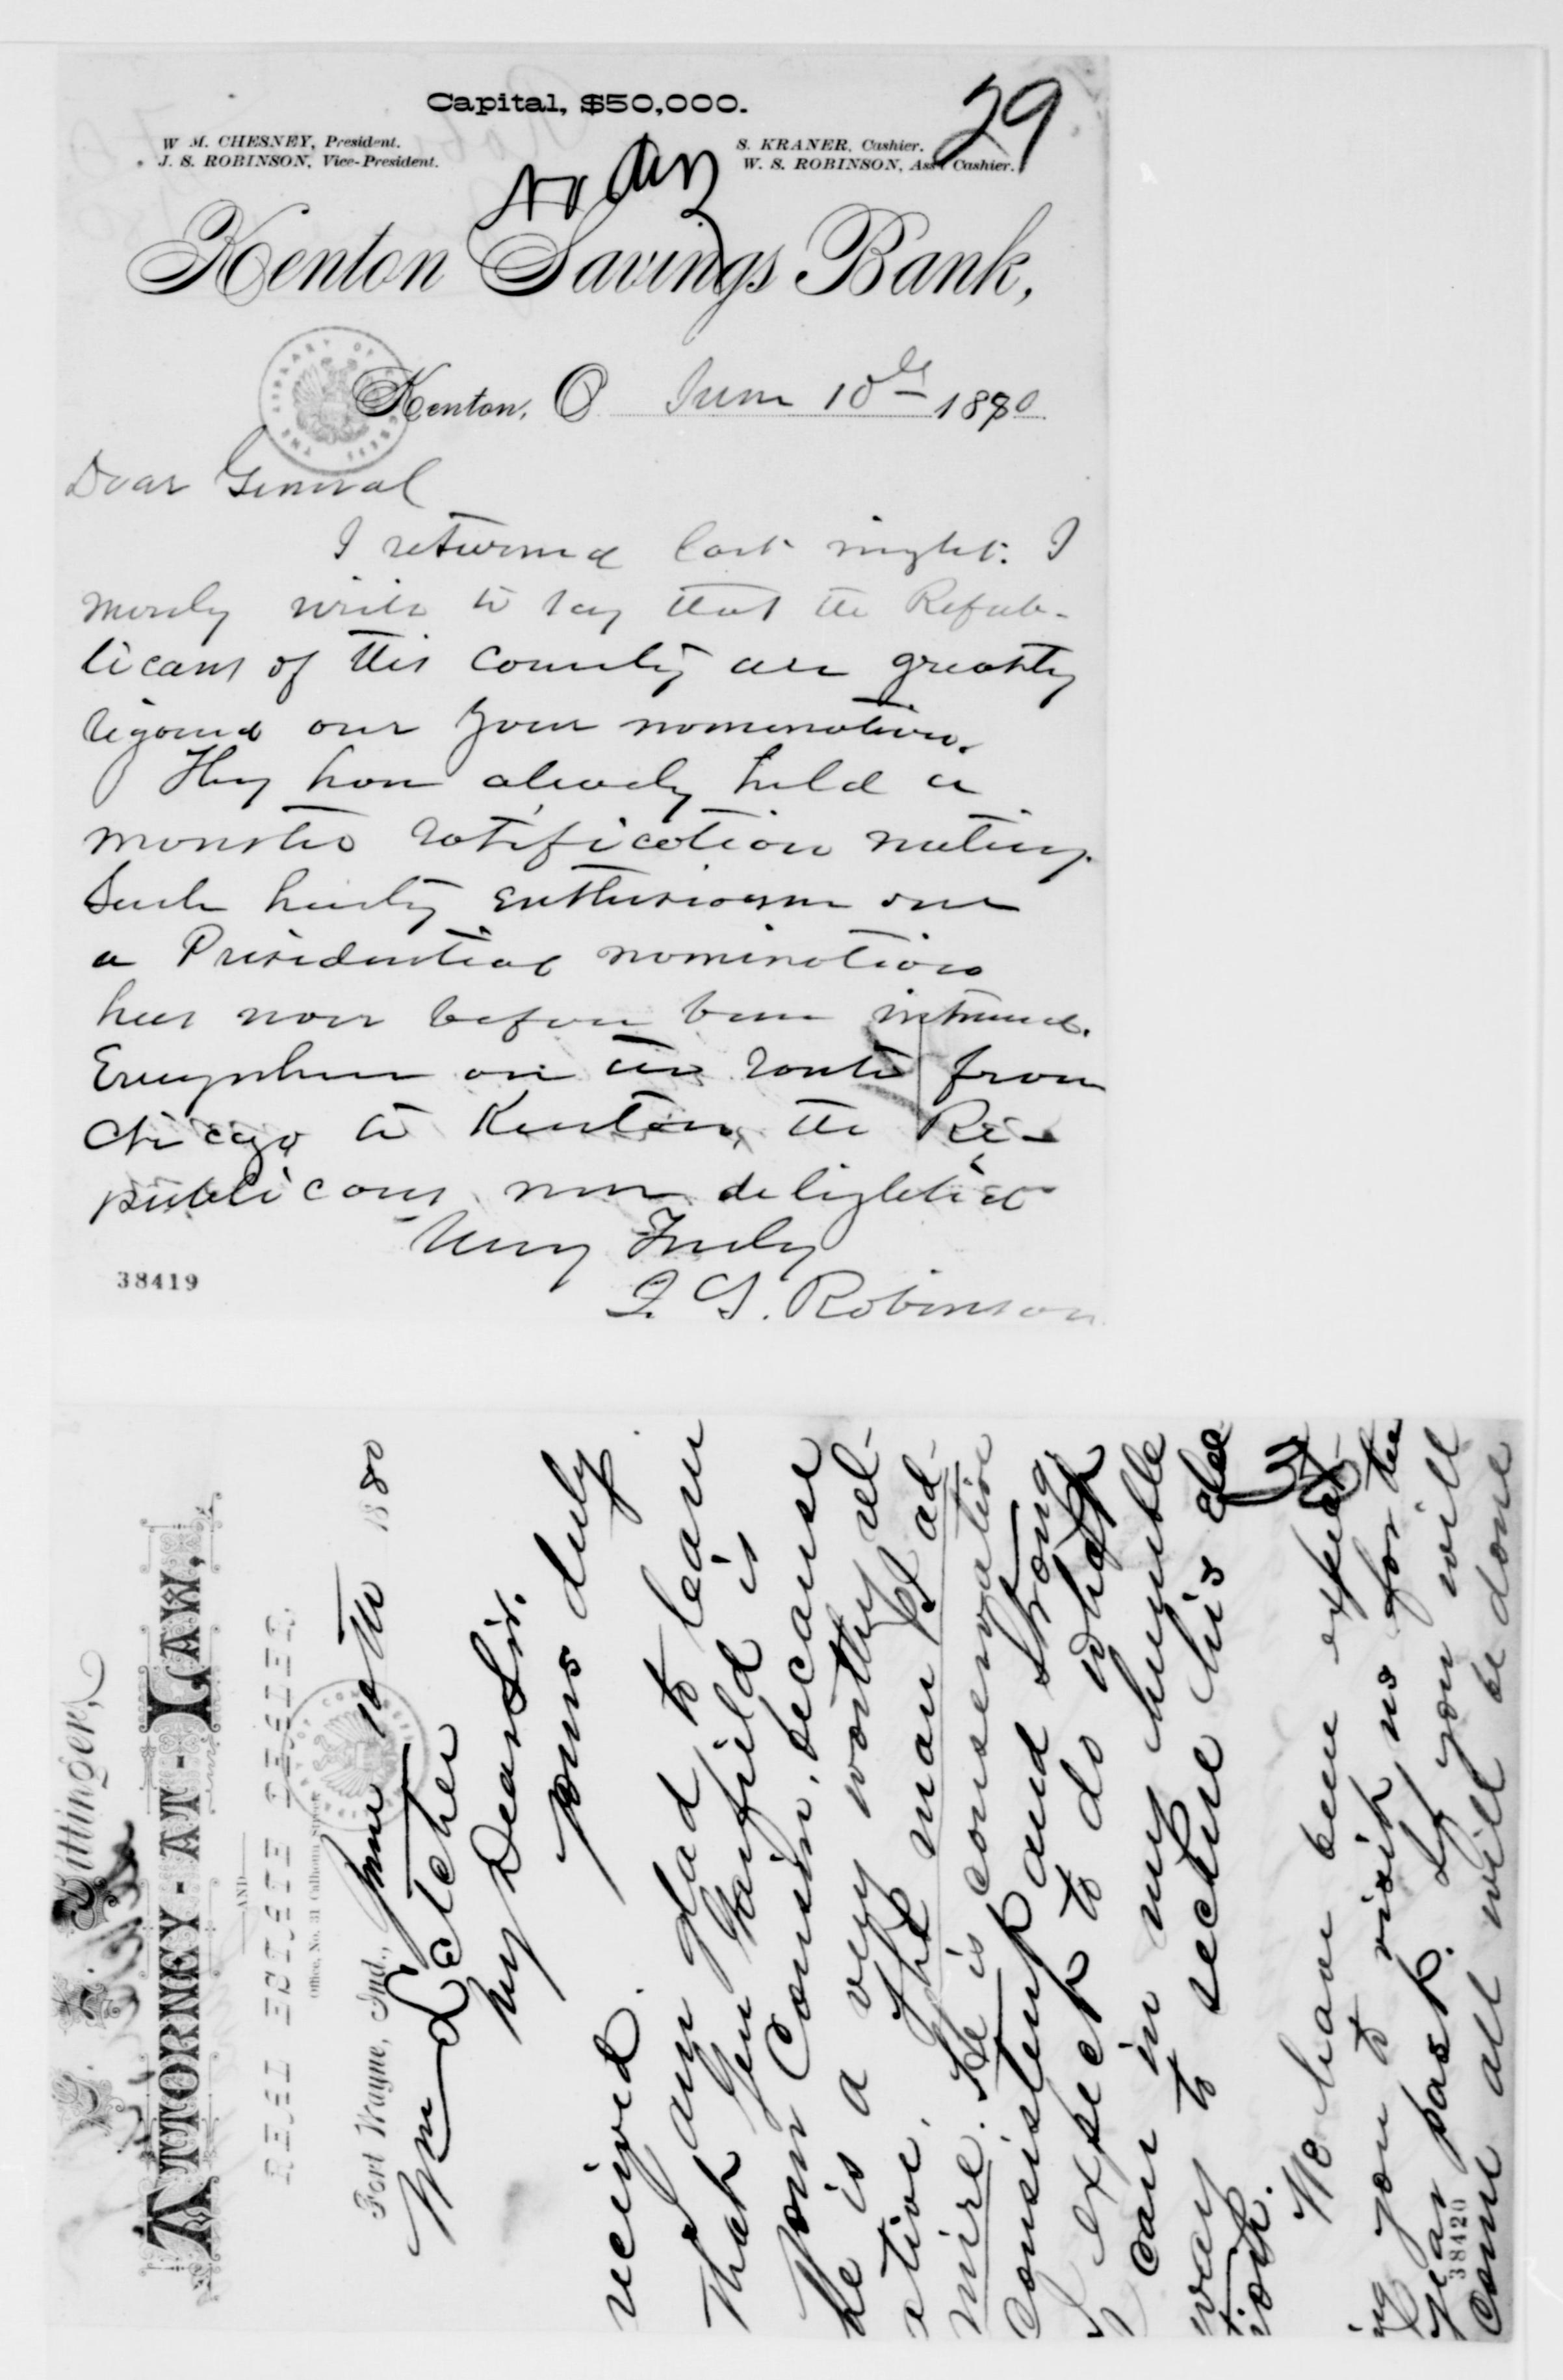 Capital, $50,000.
29
W. M. CHESNEY, President.
J. S. ROBINSON, Vice-President.
S. KRANER, Cashier.
W. S. ROBINSON, Ass't Cashier.
Kenton Savings Bank,
Kenton, O June 10th 1880
Dear General
I returned last night. I
merely write to say that the Repub-
licans of this County are greatly
rejoiced over your nomination.
They have already held a
monster ratification meeting.
Such hearty enthusiasm over
a Presidential nomination
has never before been witnessed.
Everywhere on the route from
Chicago to Kenton, the Re-
publicans were delighted
Very Truly
J. S. Robinson
38419
Bittinger,
ATTORNEY-AT-LAW,
AND
REAL ESTATE
Office, No. 31 Calhoun Street
Fort Wayne, Ind., June 10th 1880
Wm Letcher
My Dear Sir.
Yours duly
received.
I am glad to learn
that Gen Garfield is
Your Cousin, because
he is a very worthy rel-
ative. The man I ad-
mire. He is conservative
consistent and strong
I expect to do what I
can in my humble
way to secure his elec
tion.
We have been expect-
ing you to visit us for the
year past. If you will
come all will be done
38420